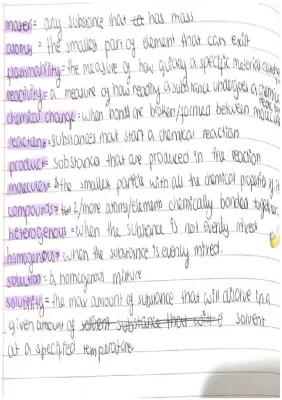 mater= any substance that has mass
atoms = the smallest part of element that can exist
flammability= the measure of how quickly a specific material
reactivity= a measure of how readily a substance undergoes a chemical
chemical change= when bonds are broken/formed between molecules
reactens= substances that start a chemical reaction
product= substance that are produced in the reaction
molecules= the smallest particle with all the chemical properties of
compounds= 2/more atoms/element chemically bonded together
heterogenous= when the substance is not evenly mixed
homogenous= when the substance is evenly mixed.
solution= a homogenous mixture
solubility= the max amount of substance that will disolve in a
given amount of solvent substance that will solvent
at a specified temperature.